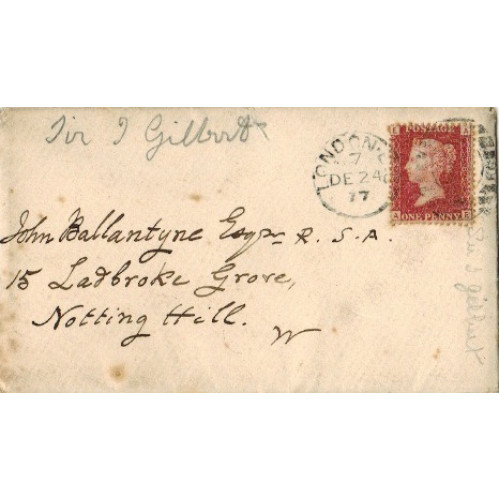 Sir J Gilbert
LONDON
7
DE 24
77
POSTAGE
ONE PENNY
John Ballantyne Esqre R.S.A.
15 Ladbroke Grove,
Notting Hill.
W
Sir J Gilbert